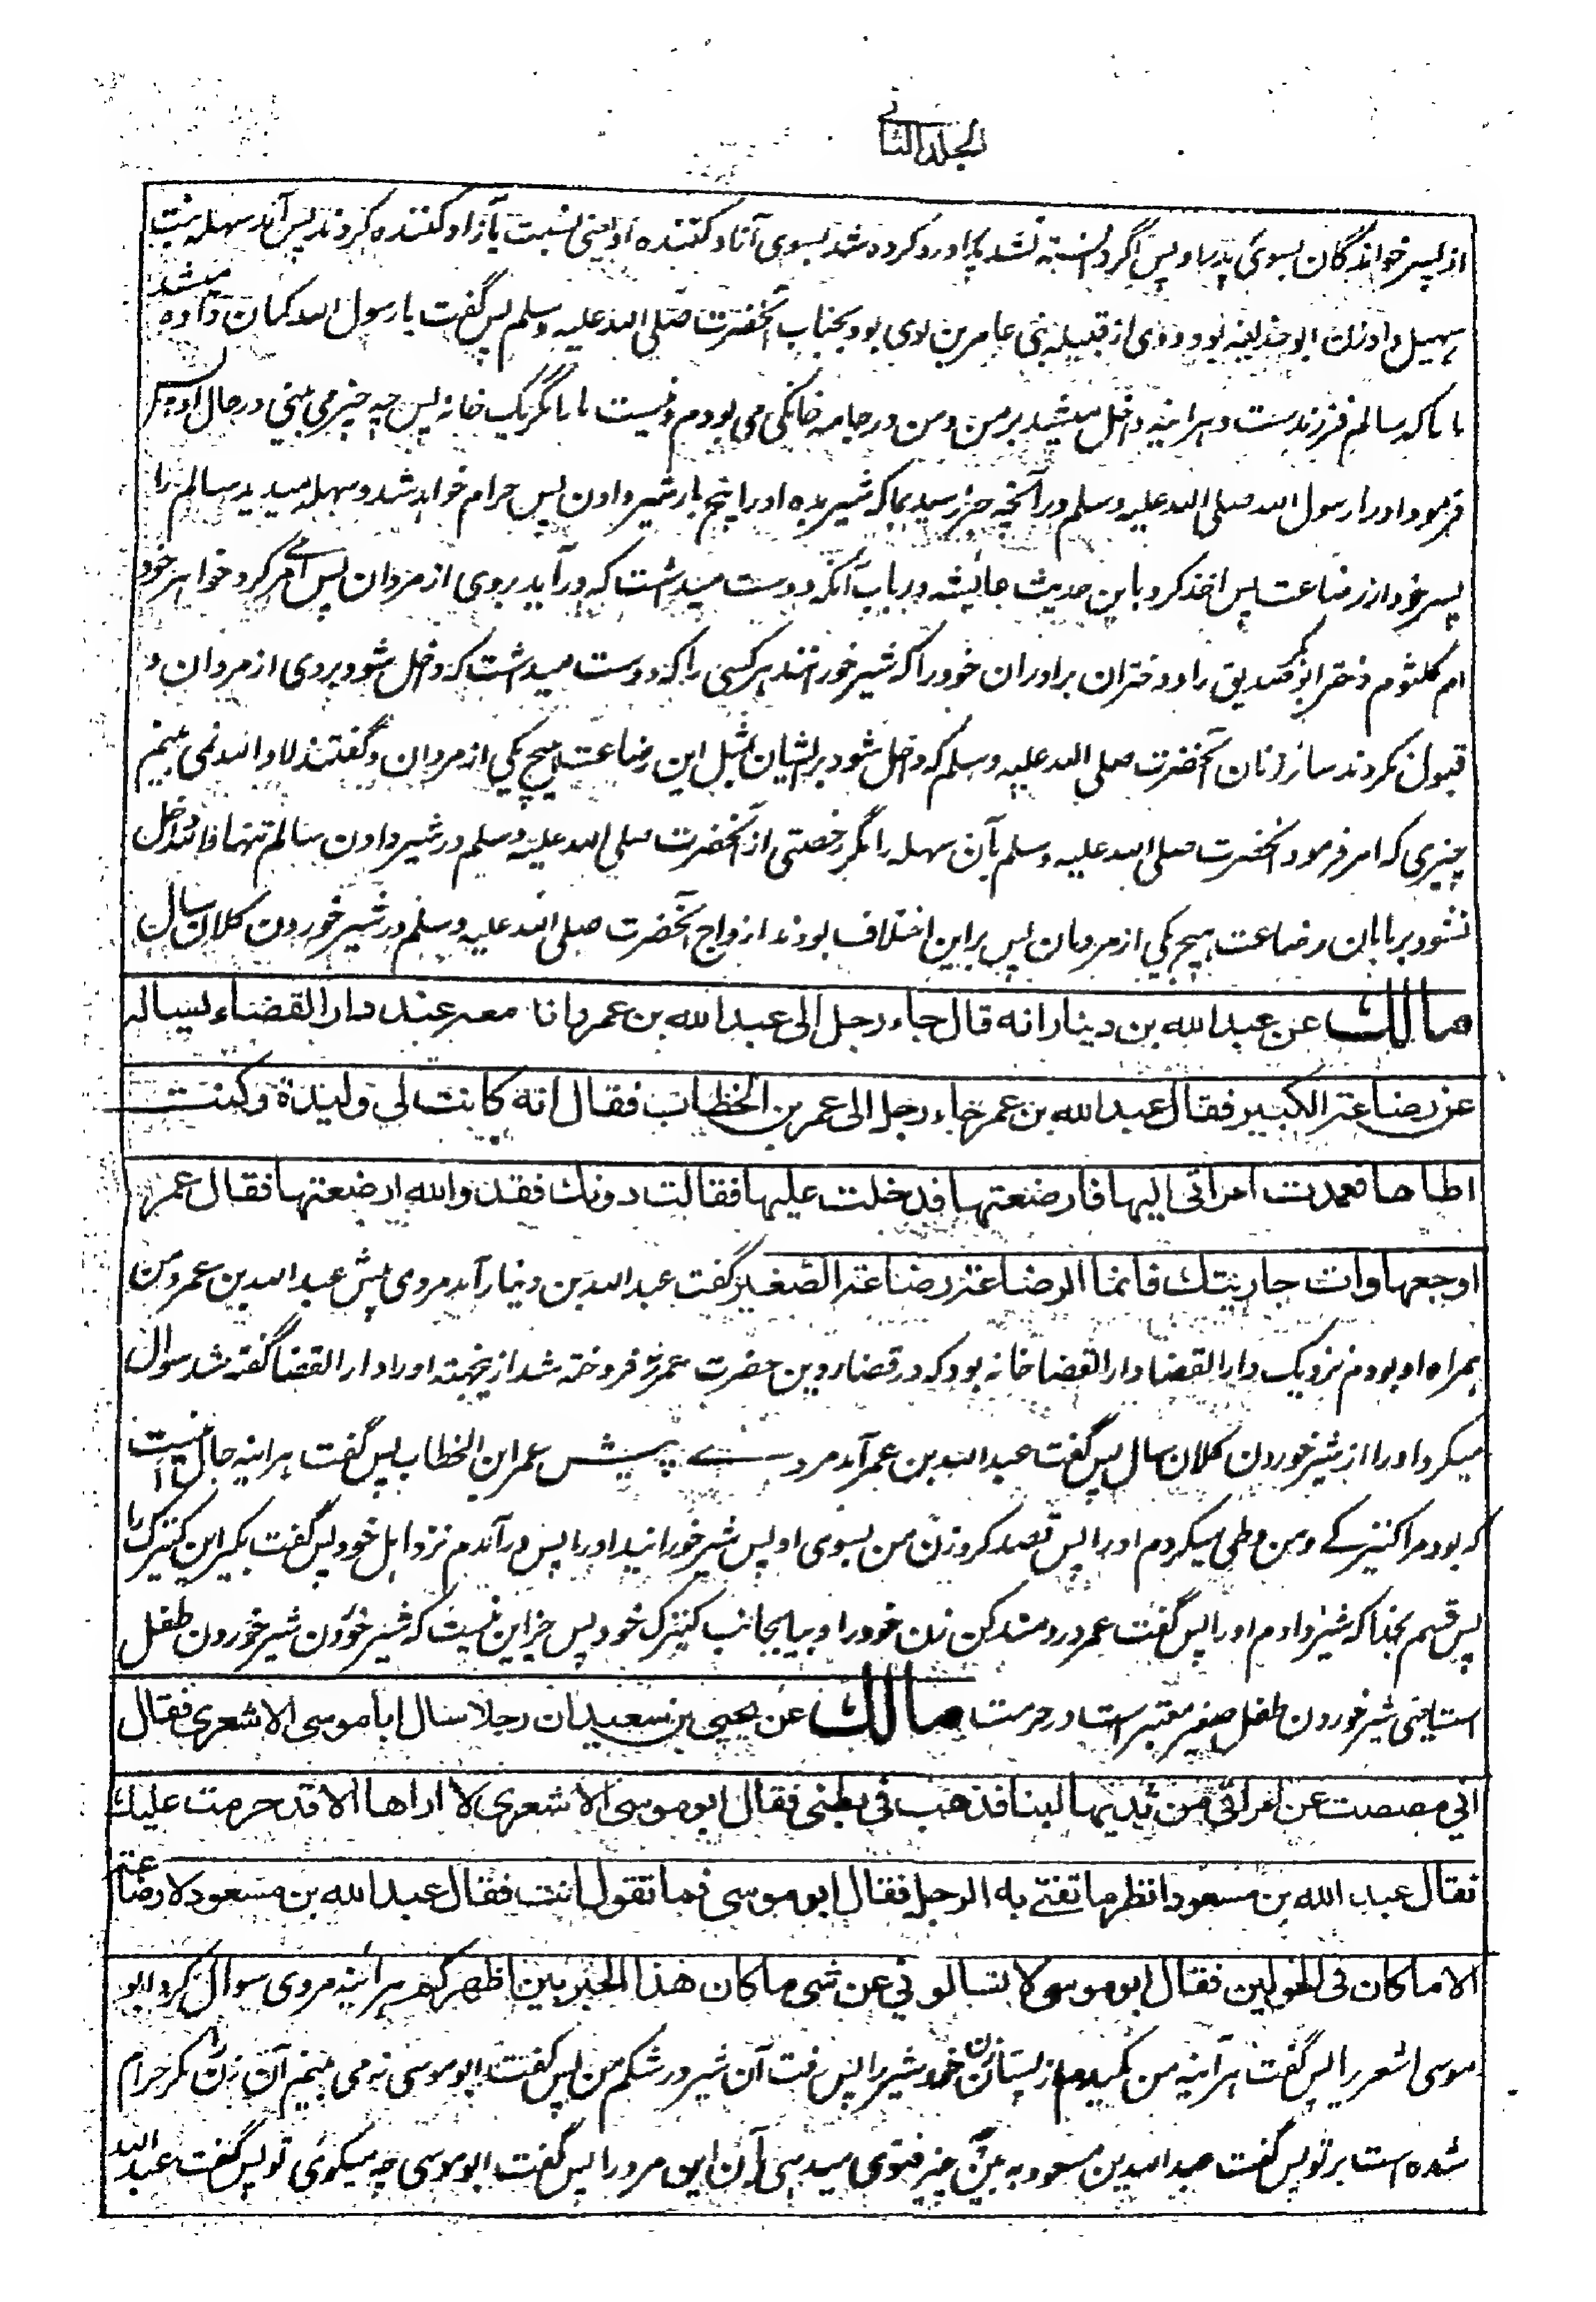 الجلد الثانی
از پسر خواندگان بسوی پدر او پس اگر دانسته نشد پدر او رد کرده شد بسوی آزاد کننده او یعنی نسبت بآزاد کننده کردند پس آمد سهله بنت
سهیل و او زن ابو حذیفه بود و وی از قبیله بنی عامر بن لوی بود بجناب آنحضرت صلی الله علیه وسلم پس گفت یا رسول الله گمان داده میشد
ما را که سالم فرزندست و هرآئینه داخل میشد بر من و من در جامه خانگی می بودم و نیست ما را مگر یک خانه پس چه چیز می بینی در حال او پس
فرمود او را رسول الله صلی الله علیه وسلم در آنچه خبر رسید بما که شیر بده او را پنج بار شیر دادن پس حرام خواهد شد و سهله میدید سالم را
پسر خود از رضاعت پس اخذ کرد باین حدیث عائشه در باب آنکه دوست میداشت که در آید بروی از مردان پس امر می کرد خواهر خود
ام کلثوم دختر ابوبکر صدیق را و دختران برادران خود را که شیر خورانند هر کسی را که دوست میداشت که داخل شود بروی از مردان و
قبول نکردند سائر زنان آنحضرت صلی الله علیه وسلم که داخل شود بر ایشان بمثل این رضاعت هیچ یکی از مردان و گفتند لا والله نمی بینم
چیزی که امر فرمود آنحضرت صلی الله علیه وسلم بآن سهله را مگر رخصتی از آنحضرت صلی الله علیه وسلم در شیر دادن سالم تنها والله داخل
نشود بر ما باین رضاعت هیچ یکی از مردمان پس بر این اختلاف بودند ازواج آنحضرت صلی الله علیه وسلم در شیر خوردن کلان سال
مالك عن عبد الله بن دينار انه قال جاء رجل الى عبد الله بن عمر وانا معه عند دار القضاء يساله
عن رضاعة الكبير فقال عبد الله بن عمر جاء رجل الى عمر بن الخطاب فقال انه كانت لي وليدة وكنت
اطاها فعمدت امراتي اليها فارضعتها فدخلت عليها فقالت دونك فقد والله ارضعتها فقال عمر
اوجعها وات جاريتك فانما الرضاعة رضاعة الصغير گفت عبد الله بن دینار آمد مردی پیش عبد الله بن عمر و من
همراه او بودم نزدیک دار القضا دار القضا خانه بود که در قضاء دین حضرت عمر فروخته شد ازینجهته او را دار القضا گفته شد سوال
میکرد او را از شیر خوردن کلان سال پس گفت عبد الله بن عمر آمد مردے پیش عمر ابن الخطاب پس گفت هرآئینه حال اینست
که بود مرا کنیزکے و من وطی میکردم او را پس قصد کرد زن من بسوی او پس شیر خورانید او را پس در آمدم نزد اهل خود پس گفت بگیر این کنیزک را
پس قسم بخدا که شیر دادم او را پس گفت عمر دردمند کن زن خود را و بیا بجانب کنیزک خود پس جز این نیست که شیر خوردن شیر خوردن طفل
است یعنی شیر خوردن طفل صغیر معتبر است در حرمت مالك عن يحيى بن سعيد ان رجلا سال ابا موسى الاشعري فقال
اني مصصت عن امراتي من ثديها لبنا فذهب في بطني فقال ابو موسى الاشعري لا اراها الا قد حرمت عليك
فقال عبد الله بن مسعود انظر ما تفتي به الرجل فقال ابو موسى فما تقول انت فقال عبد الله بن مسعود لا رضاعة
الا ما كان في الحولين فقال ابو موسى لا تسالوني عن شي ما كان هذا الحبر بين اظهركم هرآئینه مردی سوال کرد ابو
موسی اشعر را پس گفت هرآئینه من مکیدم از پستان زن خود شیر را پس رفت آن شیر در شکم من پس گفت ابو موسی نه می بینم آن زن را مگر حرام
شده است بر تو پس گفت عبد الله بن مسعود به بین چیز فتوی میدهی بآن این مرد را پس گفت ابو موسی چه میگوئی تو پس گفت عبد الله